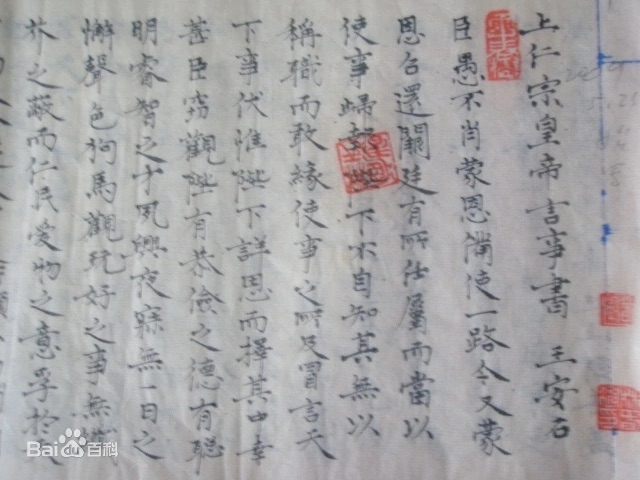 上仁宗皇帝言事書 王安石
臣愚不肖蒙恩備使一路今又蒙
恩召還闕廷有所任屬而當以
使事歸報陛下不自知其無以
稱職而敢緣使事之所及冒言天
下事伏惟陛下詳恩而擇其中幸
甚臣窃觀陛有恭儉之德有聡
明睿智之才夙興夜寐無一日之
懈聲色狗馬觀玩好之事無纖
芥之蔽而仁民愛物之意孚於
Bai百科